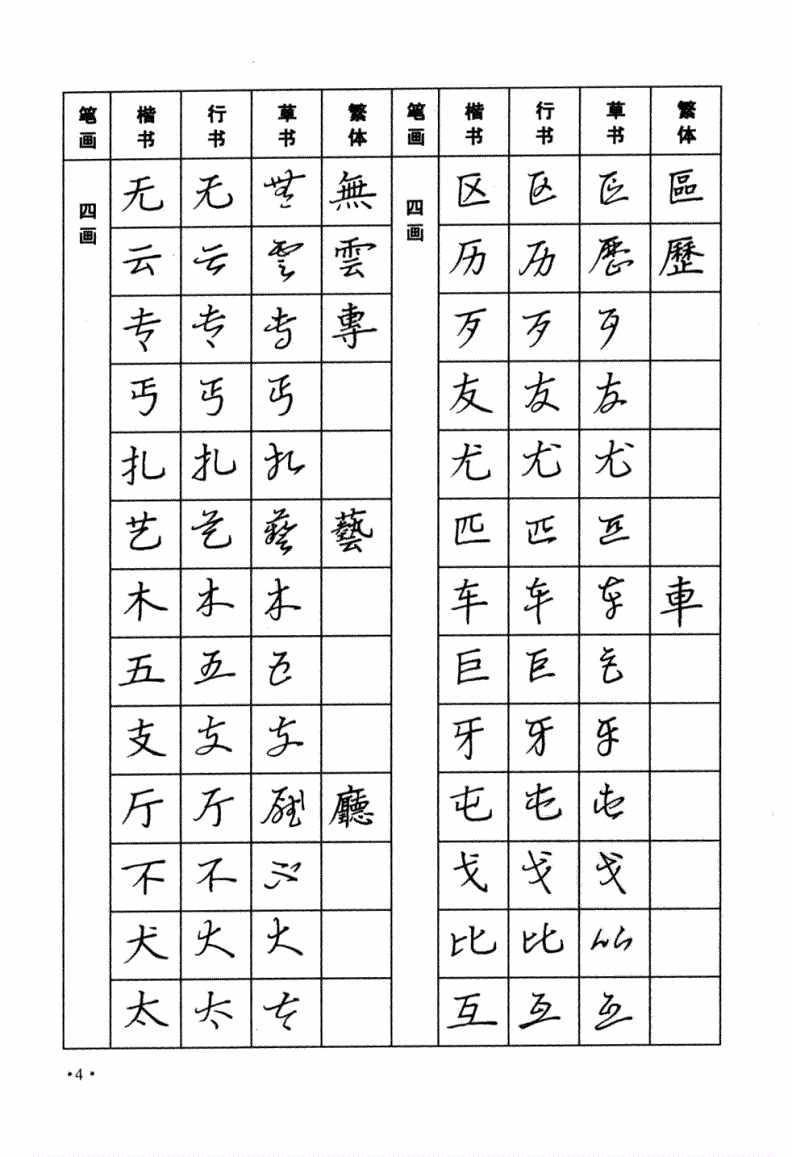 笔画 楷书 行书 草书 繁体 笔画 楷书 行书 草书 繁体
四画 无 无 无 無 四画 区 区 区 區
云 云 云 雲 历 历 历 歷
专 专 专 專 歹 歹 歹
丐 丐 丐 友 友 友
扎 扎 扎 尤 尤 尤
艺 艺 艺 藝 匹 匹 匹
木 木 木 车 车 车 車
五 五 五 巨 巨 巨
支 支 支 牙 牙 牙
厅 厅 厅 廳 屯 屯 屯
不 不 不 戈 戈 戈
犬 犬 犬 比 比 比
太 太 太 互 互 互
·4·